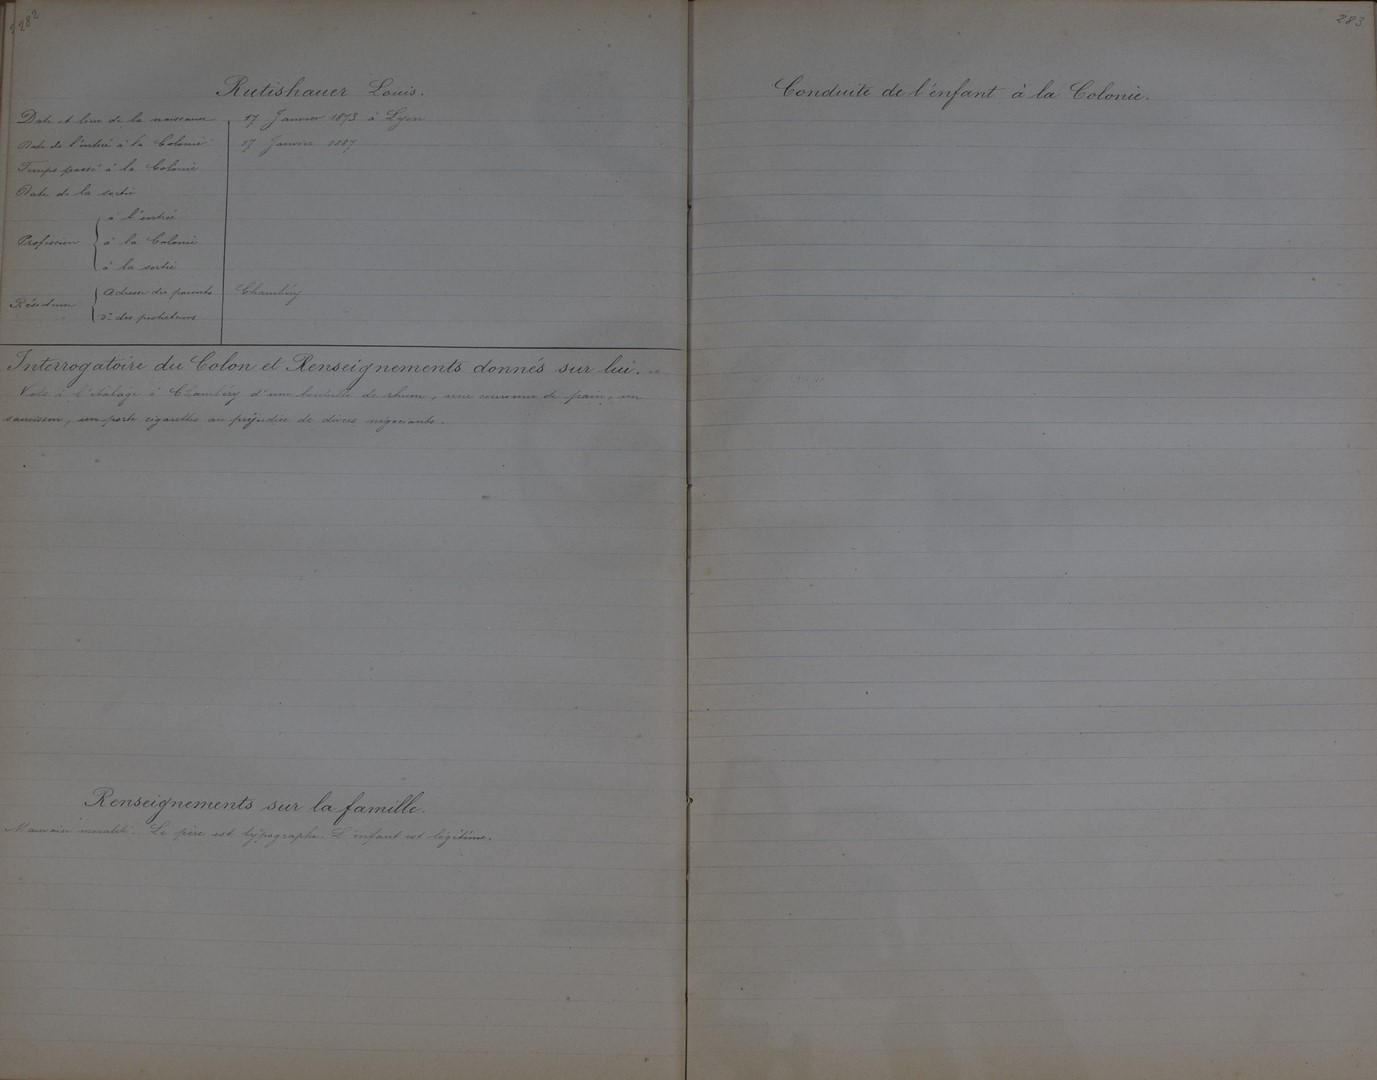 282
Rutishauer Louis.
Date et lieu de la naissance 17 Janvier 1873 à Lyon
Date de l'entrée à la Colonie 17 Janvier 1887
Temps passé à la Colonie
Date de la sortie
Profession
à l'entrée
à la Colonie
à la sortie
Résidence
Adresse des parents Chambéry
d° des protecteurs
Interrogatoire du Colon et Renseignements donnés sur lui.
Vols à l'étalage à Chambéry d'une bouteille de rhum, une couronne de pain, un
saucisson, un porte cigarettes au préjudice de divers négociants.
Renseignements sur la famille.
Mauvaise moralité. Le père est typographe. L'enfant est légitime.
283
Conduite de l'enfant à la Colonie.